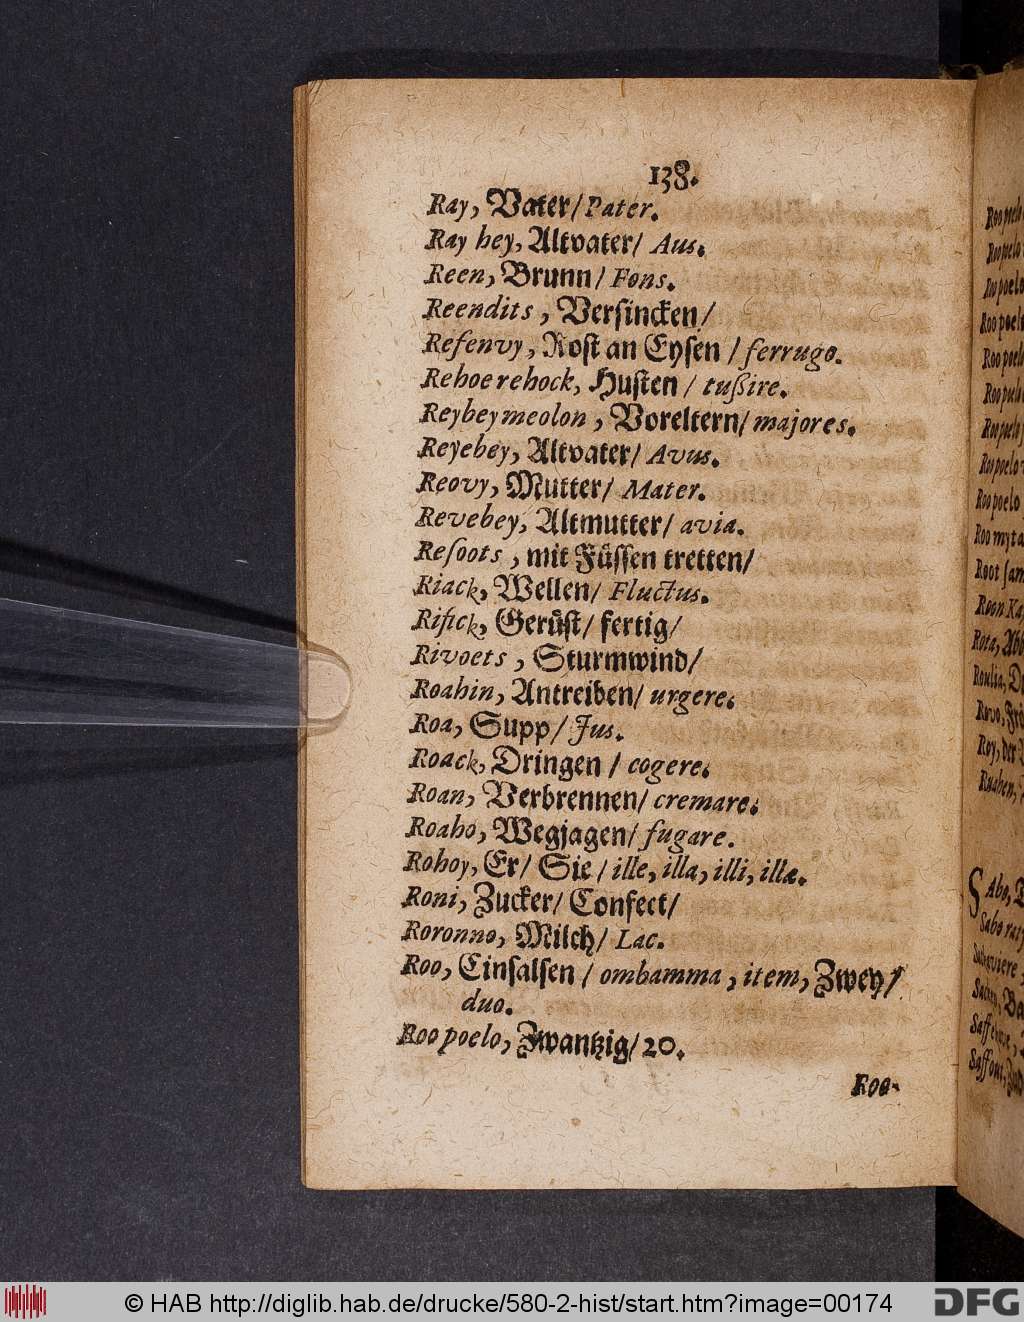 138.
Ray, Vater/ Pater.
Ray hey, Altvater/ Aus.
Reen, Brunn/ Fons.
Reendits, Versincken/
Refenvy, Rost an Eysen / ferrugo.
Rehoe rehock, Husten / tußire.
Reybeymeolon, Voreltern/ majores.
Reyebey, Altvater/ Avus.
Reovy, Mutter/ Mater.
Revebey, Altmutter/ avia.
Resoots, mit Füssen tretten/
Riack, Wellen/ Fluctus.
Rifick, Gerüst/ fertig/
Rivoets, Sturmwind/
Roahin, Antreiben/ urgere.
Roa, Supp/ Jus.
Roack, Dringen / cogere.
Roan, Verbrennen/ cremare.
Roaho, Wegjagen/ fugare.
Rohoy, Er/ Sie / ille, illa, illi, illæ.
Roni, Zucker/ Confect/
Roronno, Milch/ Lac.
Roo, Einsalsen / ombamma, item, Zwey/
duo.
Roo poelo, Zwantzig/ 20.
Roo-
Roo poelo
Roo poelo
Roo poelo
Roo poelo
Roo poelo
Roo poelo
Roo poelo
Roo poelo
Roo poelo
Roo myta
Root sam
Roon Ka
Rota, Abo
Roulia,
Rovo,
Roy, der
Ruahen,
SAbo,
Sabo
© HAB http://diglib.hab.de/drucke/580-2-hist/start.htm?image=00174
DFG